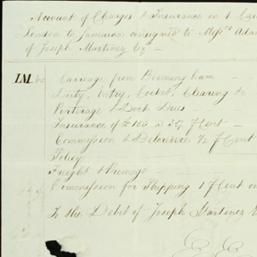 Account of Charges & Insurance on 1 Ca
London to Jamaica consigned to Messrs Ada
of Joseph Martinez by —
Carriage from Birmingham
Duty, Entry, Cocket, Clearing &c
Porterage & Dock Dues
Insurance of £
Commission & Delcredere ½ ⅌ Cent
Policy
Freight & Primage
Commission for Shipping 1 ⅌ Cent on
To the Debit of Joseph Martinez